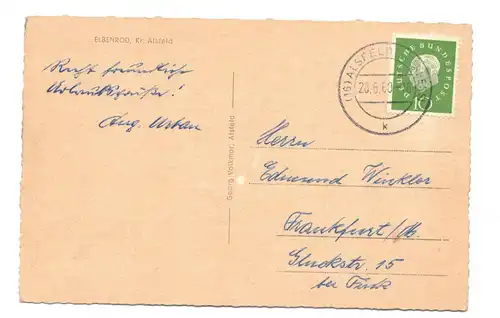 ELBENROD, Kr. Alsfeld
Recht freundliche
Urlaubsgrüße!
Aug. Urban
Georg Volkmar, Alsfeld
(16) ALSFELD
20.6.60
k
DEUTSCHE BUNDESPOST
10
Herrn
Edmund Winkler
Frankfurt/M.
Gluckstr. 15
bei Fink